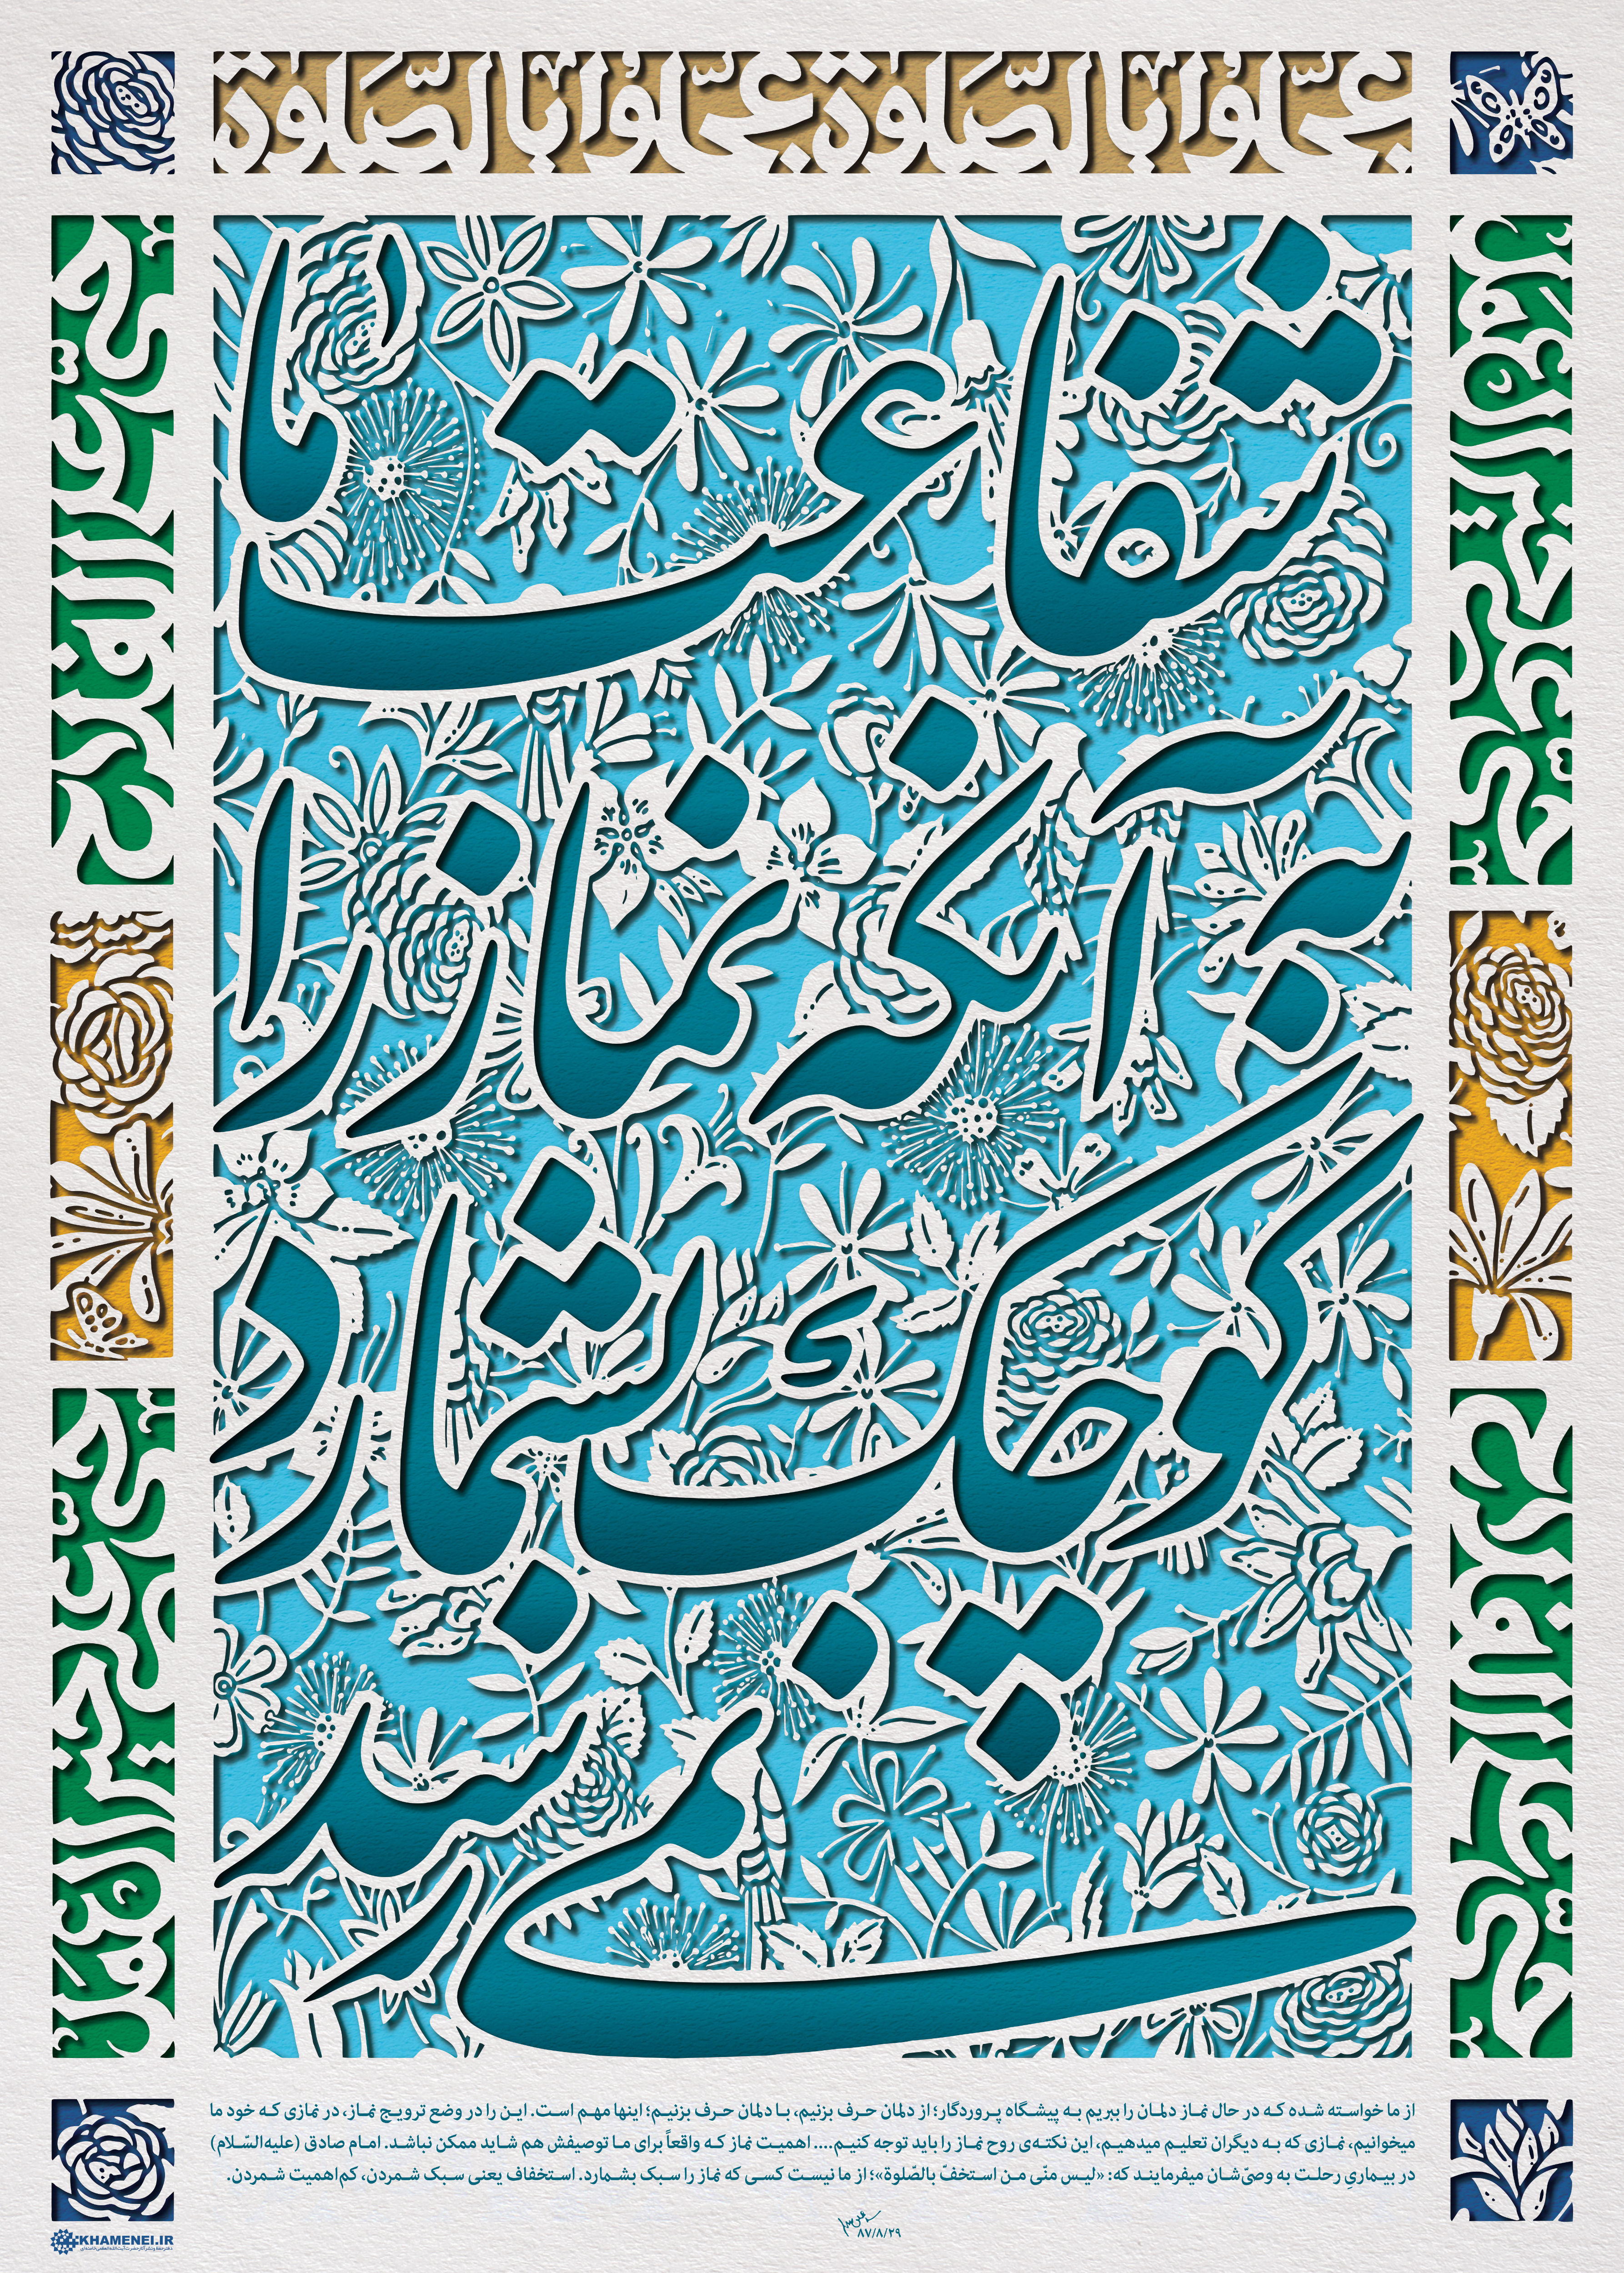 عجّلوا بالصّلوة عجّلوا بالصّلوة
حیّ علی خیر العمل
حیّ علی الفلاح
شفاعت ما
به آنکه نماز را
کوچک بشمارد
نمی رسد
حیّ علی الفلاح
حیّ علی خیر العمل
از ما خواسته شده که در حال نماز دلمان را ببریم به پیشگاه پروردگار؛ از دلمان حرف بزنیم، با دلمان حرف بزنیم؛ اینها مهم است. این را در وضع ترویج نماز، در نمازی که خود ما
میخوانیم، نمازی که به دیگران تعلیم میدهیم، این نکته‌ی روح نماز را باید توجه کنیم.... اهمیت نماز که واقعاً برای ما توصیفش هم شاید ممکن نباشد. امام صادق (علیه‌السّلام)
در بیماریِ رحلت به وصیّ‌شان میفرمایند که: «لیس منّی من استخفّ بالصّلوة»؛ از ما نیست کسی که نماز را سبک بشمارد. استخفاف یعنی سبک شمردن، کم‌اهمیت شمردن.
۸۷/۸/۲۹
KHAMENEI.IR